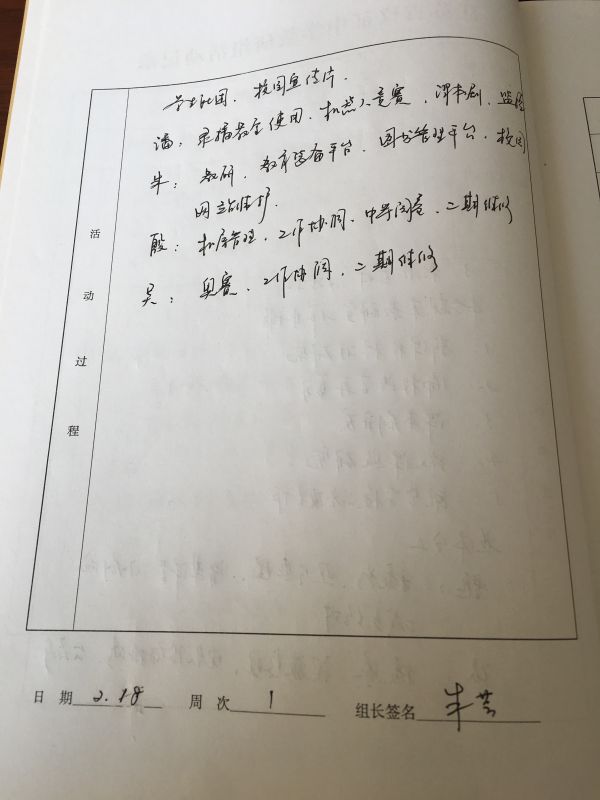 学生社团、校园宣传片.
潘: 录播教室使用、机器人竞赛、课本剧、监控
牛: 教研、教育装备平台、图书管理平台、校园
网站维护.
殷: 机房管理、工作协调、中考阅卷、二期维修
吴: 奥赛、工作协调、二期维修
活动过程
日 期 2.18 周 次 1 组长签名 牛芸